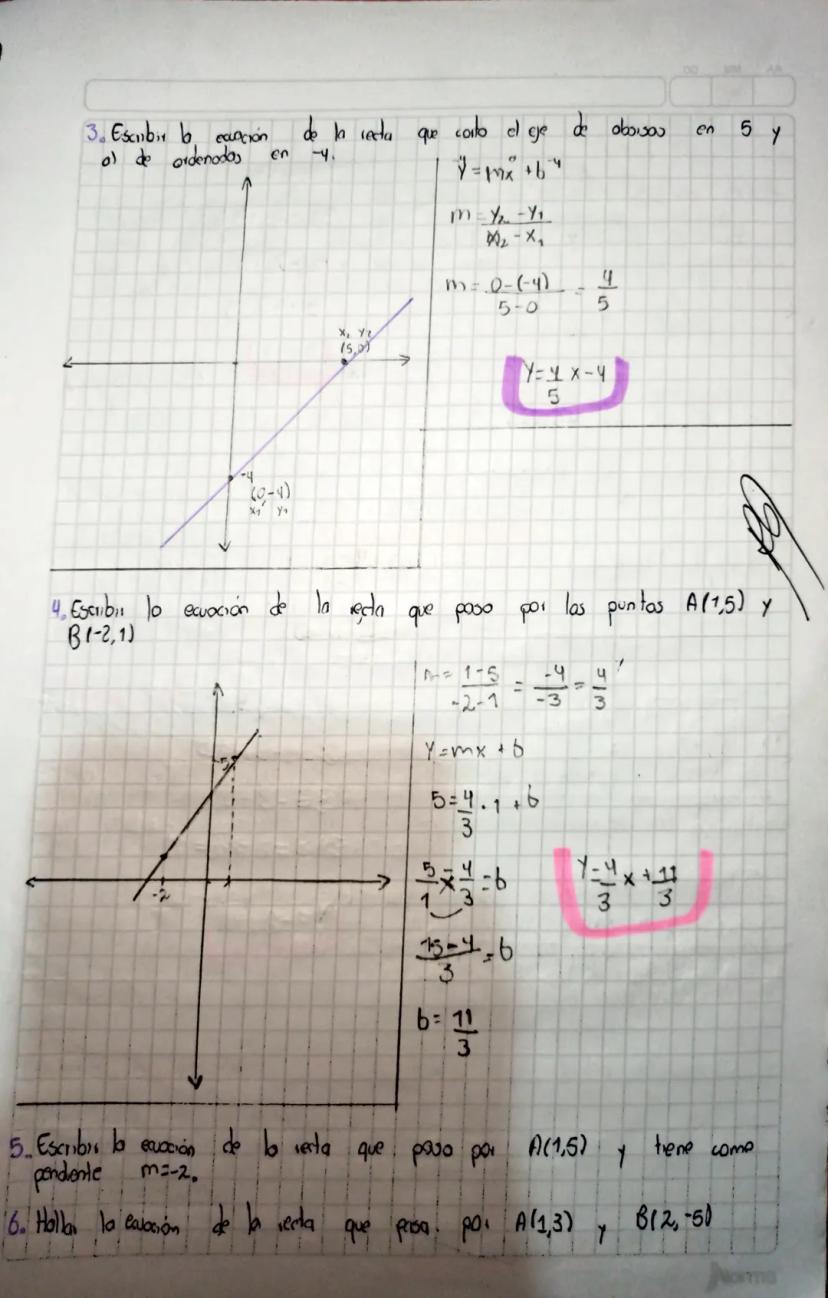 3. Escribir la ecuación de la recta que corta el eje de abscisas en 5 y
al de ordenadas en -4.
y = mx + b -4
m = y₂ - y₁
x₂ - x₁
m = 0-(-4) = 4
5-0 5
x₂ y₂
(5,0)
y = 4 x - 4
5
-4
(0,-4)
x₁ y₁
4. Escribir la ecuación de la recta que pasa por los puntos A(1,5) y
B(-2,1)
m = 1-5 = -4 = 4
-2-1 -3 3
y = mx + b
5 = 4 · 1 + b
3
5 - 4 = b
1 3
y = 4 x + 11
3 3
15-4 = b
3
b = 11
3
5
-2
1
5. Escribir la ecuación de la recta que pasa por A(1,5) y tiene como
pendiente m=-2.
6. Hallar la ecuación de la recta que pasa por A(1,3) y B(2,-5)
Norma